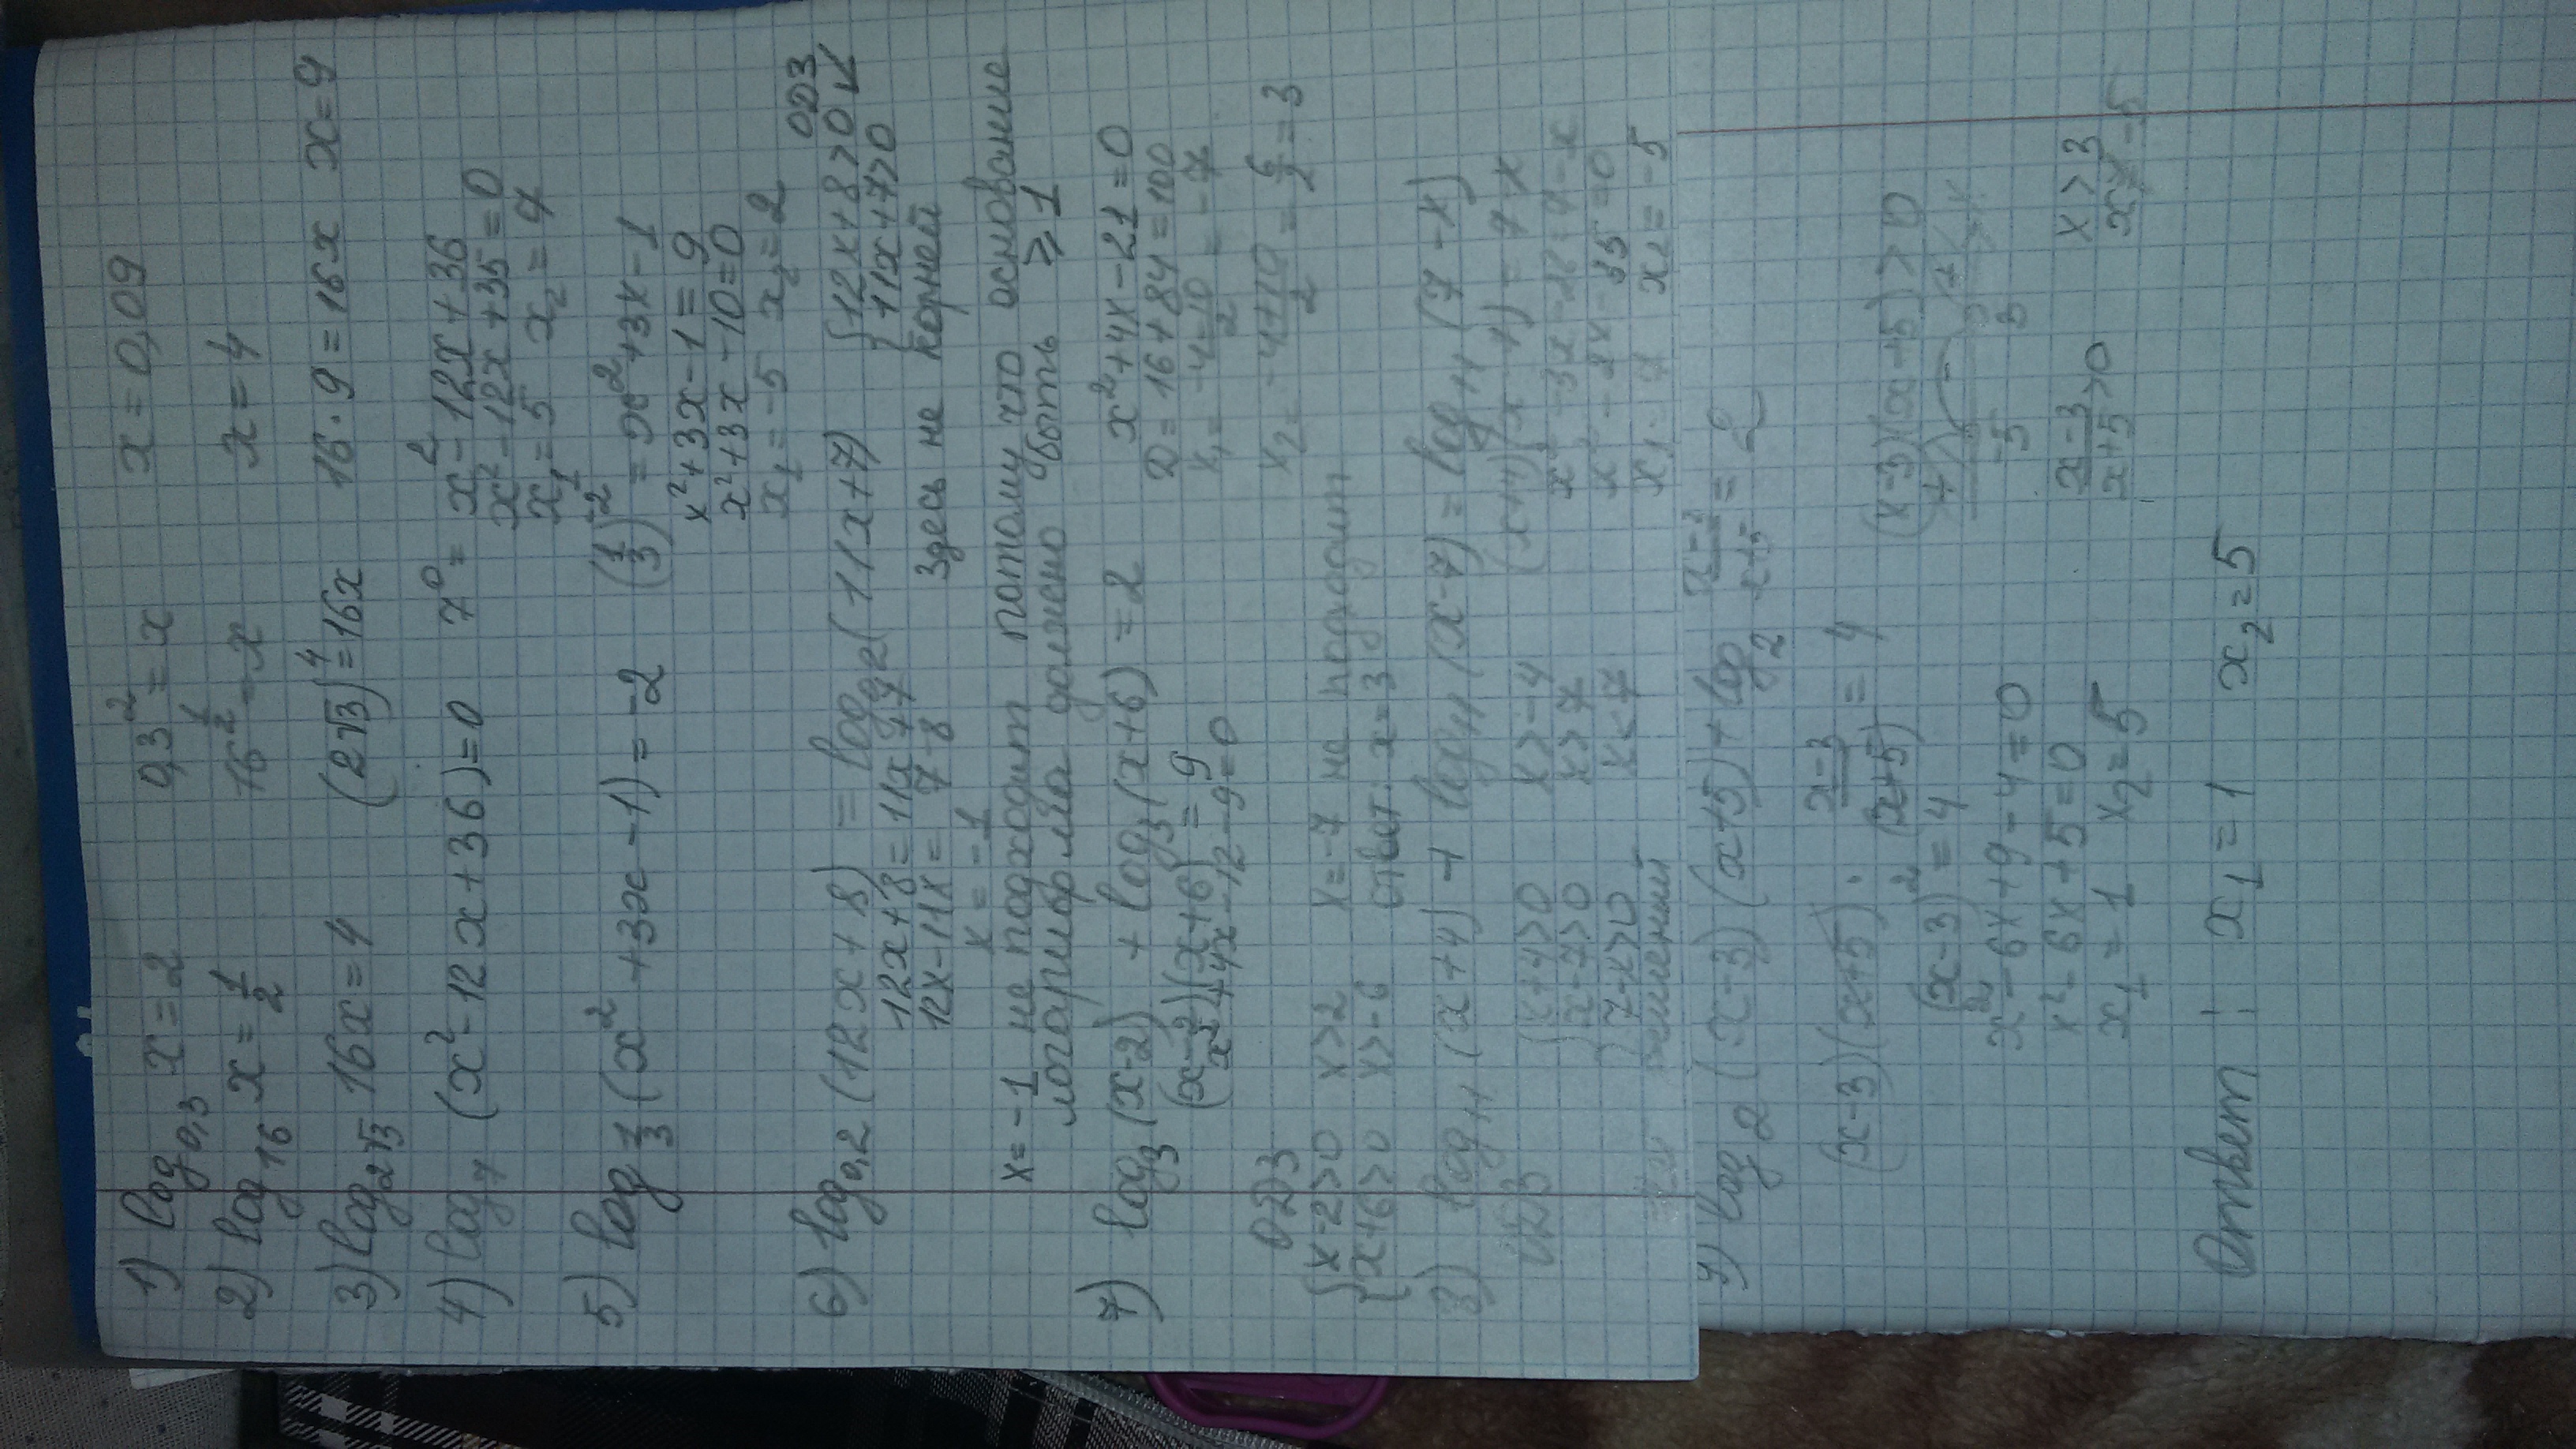 1) log₀,₃ x = 2   0,3² = x   x = 0,09
2) log₁₆ x = 1/2   16^(1/2) = x   x = 4
3) log₂√₃ 16x = 4   (2√3)⁴ = 16x   16·9 = 16x   x = 9
4) log₇ (x² - 12x + 36) = 0   7⁰ = x² - 12x + 36
x² - 12x + 35 = 0
x₁ = 5   x₂ = 7
5) log 1/3 (x² + 3x - 1) = -2   (1/3)⁻² = x² + 3x - 1
x² + 3x - 1 = 9
x² + 3x - 10 = 0
x₁ = -5   x₂ = 2
ОДЗ
6) log₀,₂ (12x + 8) = log₀,₂ (11x + 7)   { 12x + 8 > 0
12x + 8 = 11x + 7   { 11x + 7 > 0
12x - 11x = 7 - 8   Здесь не корней
x = -1
x = -1 не подходит потому что основание
логарифма должно быть ⩾ 1
7) log₃ (x-2) + log₃ (x+6) = 2   x² + 4x - 21 = 0
(x-2)(x+6) = 9   D = 16 + 84 = 100
x² + 4x - 12 - 9 = 0   x₁ = (-4-10)/2 = -7
ОДЗ   x₂ = (-4+10)/2 = 6/2 = 3
{ x-2>0   x>2   x = -7 не подходит
{ x+6>0   x>-6   ответ: x = 3
8) log₁₁ (x+4) + log₁₁ (x-7) = log₁₁ (7-x)
ОДЗ   (x+4)(x-7) = 7-x
{ x+4>0   x>-4   x² - 3x - 28 = 7 - x
{ x-7>0   x>7   x² - 2x - 35 = 0
{ 7-x>0   x<7   x₁ = 7   x₂ = -5
решений
9) log₂ ((x-3)(x+5)) + log₂ (x-3)/(x+5) = 2
(x-3)(x+5) · (x-3)/(x+5) = 4   (x-3)(x+5) > 0
(x-3)² = 4   + - +
x² - 6x + 9 - 4 = 0   -5   3
x² - 6x + 5 = 0   (x-3)/(x+5) > 0   x > 3
x₁ = 1   x₂ = 5
Ответ: x₁ = 1   x₂ = 5